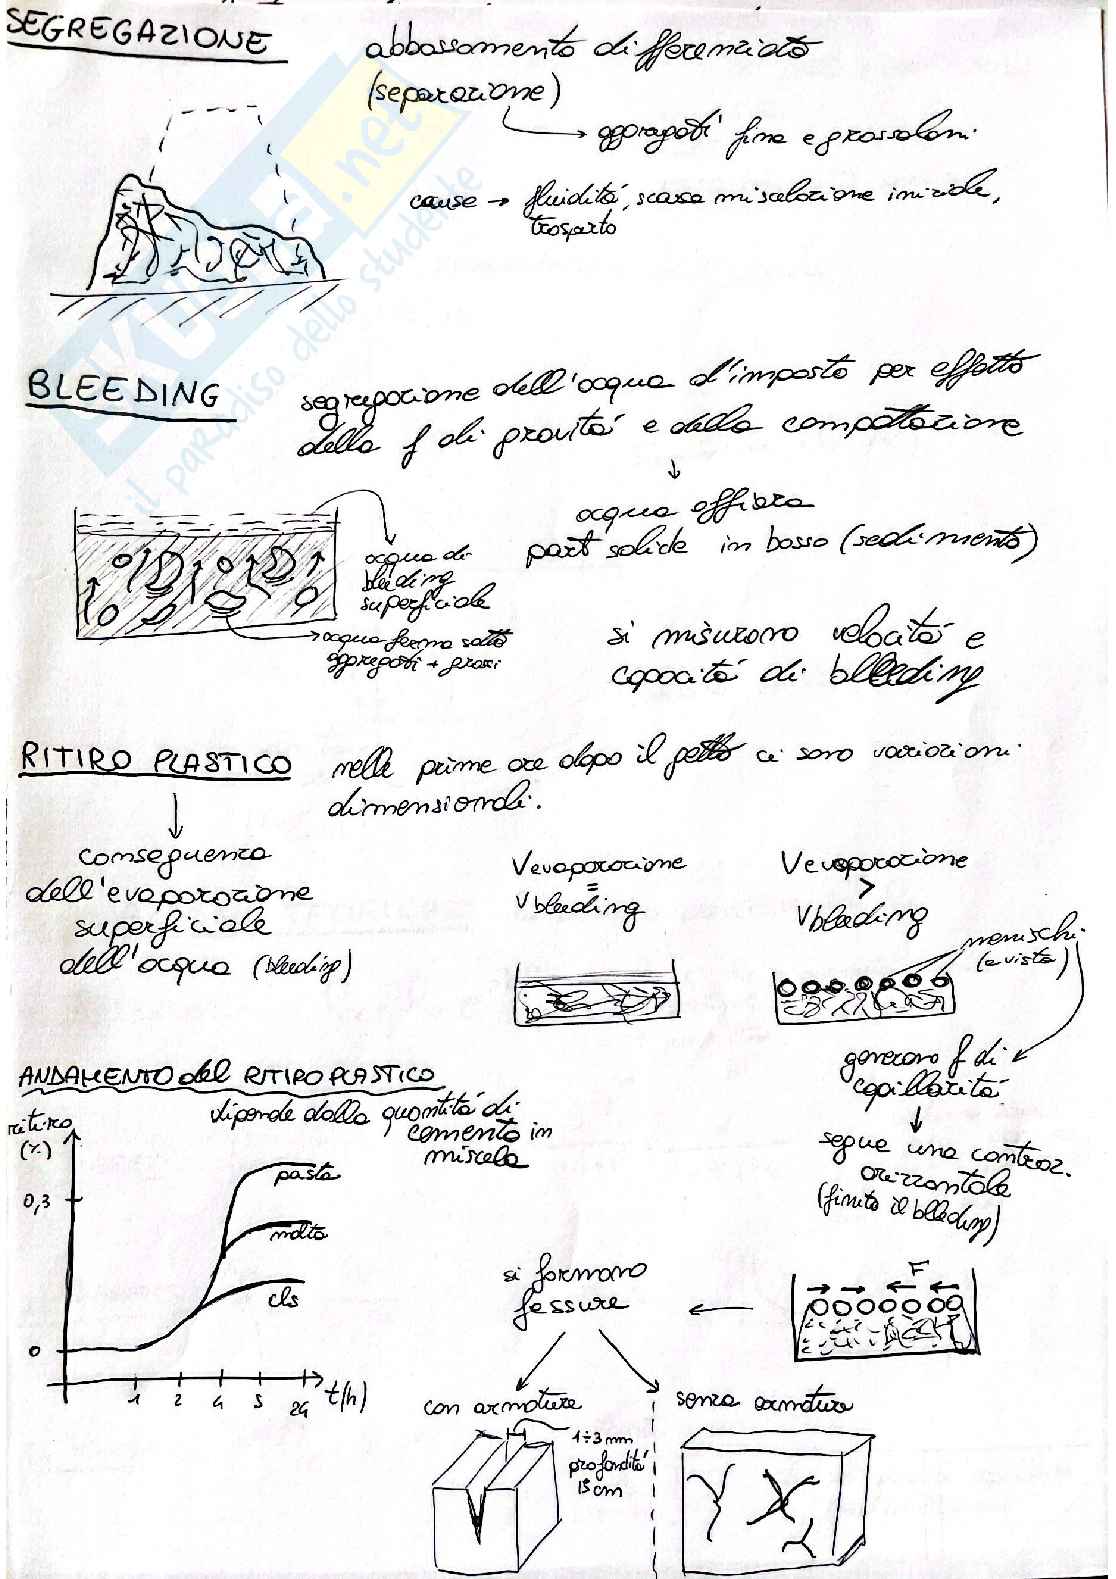 SEGREGAZIONE
abbassamento differenziato
(separazione)
aggregati fine e grossolani
cause → fluidità, scarsa miscelazione iniziale,
trasporto
SKUOLA.net
il paradiso dello studente
BLEEDING
segregazione dell'acqua d'impasto per effetto
della f di gravità e della compattazione
↓
acqua affiora
part solide in basso (sedimento)
acqua di
bleeding
superficiale
acqua ferma sotto
aggregati + grossi
si misurano velocità e
capacità di bleeding
RITIRO PLASTICO
nelle prime ore dopo il getto ci sono variazioni
dimensionali.
conseguenza
dell'evaporazione
superficiale
dell'acqua (bleeding)
Vevaporazione
=
Vbleeding
Vevaporazione
>
Vbleeding
menischi
(a vista)
generano f di
capillarità
↓
segue una contraz.
orizzontale
(finito il bleeding)
ANDAMENTO del RITIRO PLASTICO
dipende dalla quantità di
cemento in
miscela
ritiro
(%)
0,3
0
pasta
malta
cls
1 2 4 5 24 t(h)
F
si formano
fessure
con armature
senza armature
1÷3 mm
profondità
15 cm